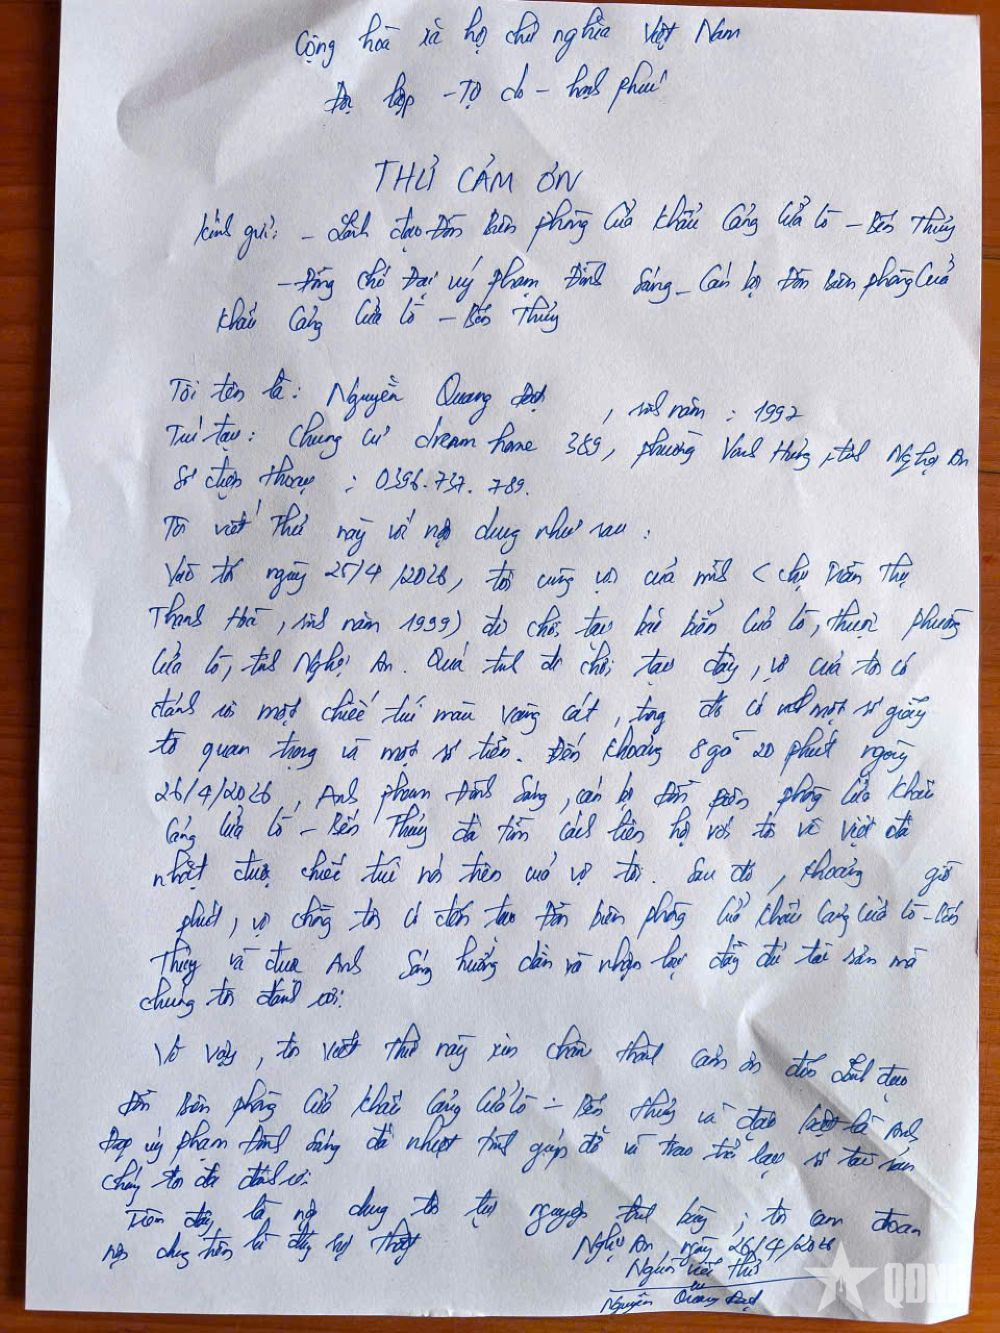 Cộng hòa xã hội chủ nghĩa Việt Nam
Độc lập - Tự do - hạnh phúc
THƯ CẢM ƠN
Kính gửi: - Lãnh đạo Đồn Biên phòng Cửa khẩu Cảng Cửa Lò - Bến Thủy
- Đồng chí Đại úy Phạm Đình Sáng - Cán bộ Đồn Biên phòng Cửa
khẩu Cảng Cửa Lò - Bến Thủy
Tôi tên là: Nguyễn Quang Đạt, sinh năm: 1992
Trú tại: Chung cư dream home 389, phường Vinh Hưng, tỉnh Nghệ An
Số điện thoại: 0396.737.789.
Tôi viết thư này với nội dung như sau:
Vào tối ngày 25/4/2026, tôi cùng vợ của mình (chị Trần Thị
Thanh Hoà, sinh năm 1999) đi chơi tại bãi biển Cửa Lò, thuộc phường
Cửa Lò, tỉnh Nghệ An. Quá trình đi chơi tại đây, vợ của tôi có
đánh rơi một chiếc túi màu vàng cát, trong đó có một số giấy
tờ quan trọng và một số tiền. Đến khoảng 8 giờ 20 phút ngày
26/4/2026, Anh Phạm Đình Sáng, cán bộ Đồn Biên phòng Cửa khẩu
Cảng Cửa Lò - Bến Thủy đã tìm cách liên hệ với tôi về việc đã
nhặt được chiếc túi nói trên của vợ tôi. Sau đó, khoảng giờ
phút, vợ chồng tôi có đến tại Đồn biên phòng Cửa khẩu Cảng Cửa Lò - Bến
Thủy và được Anh Sáng hướng dẫn và nhận lại đầy đủ tài sản mà
chúng tôi đánh rơi.
Vì vậy, tôi viết thư này xin chân thành cảm ơn đến Lãnh đạo
Đồn Biên phòng Cửa khẩu Cảng Cửa Lò - Bến Thủy và đặc biệt là Anh
Đại úy Phạm Đình Sáng đã nhiệt tình giúp đỡ và trao trả lại số tài sản
chúng tôi đã đánh rơi.
Trên đây là nội dung tôi tự nguyện trình bày; tôi cam đoan
nội dung trên là đúng sự thật
Nghệ An, ngày 26/4/2026
Người viết thư
Nguyễn Quang Đạt